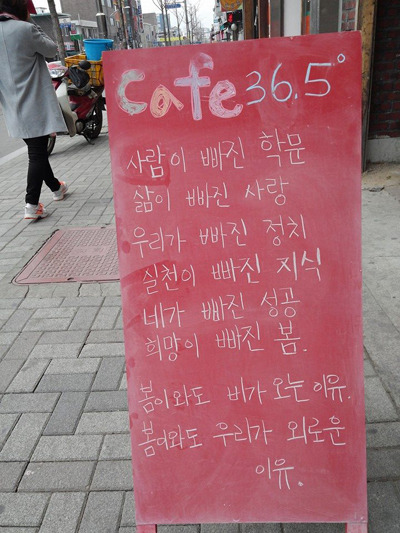 Cafe 36.5°
사람이 빠진 학문
삶이 빠진 사랑
우리가 빠진 정치
실천이 빠진 지식
네가 빠진 성공
희망이 빠진 봄.
봄이와도 비가 오는 이유.
봄이와도 우리가 외로운
이유.